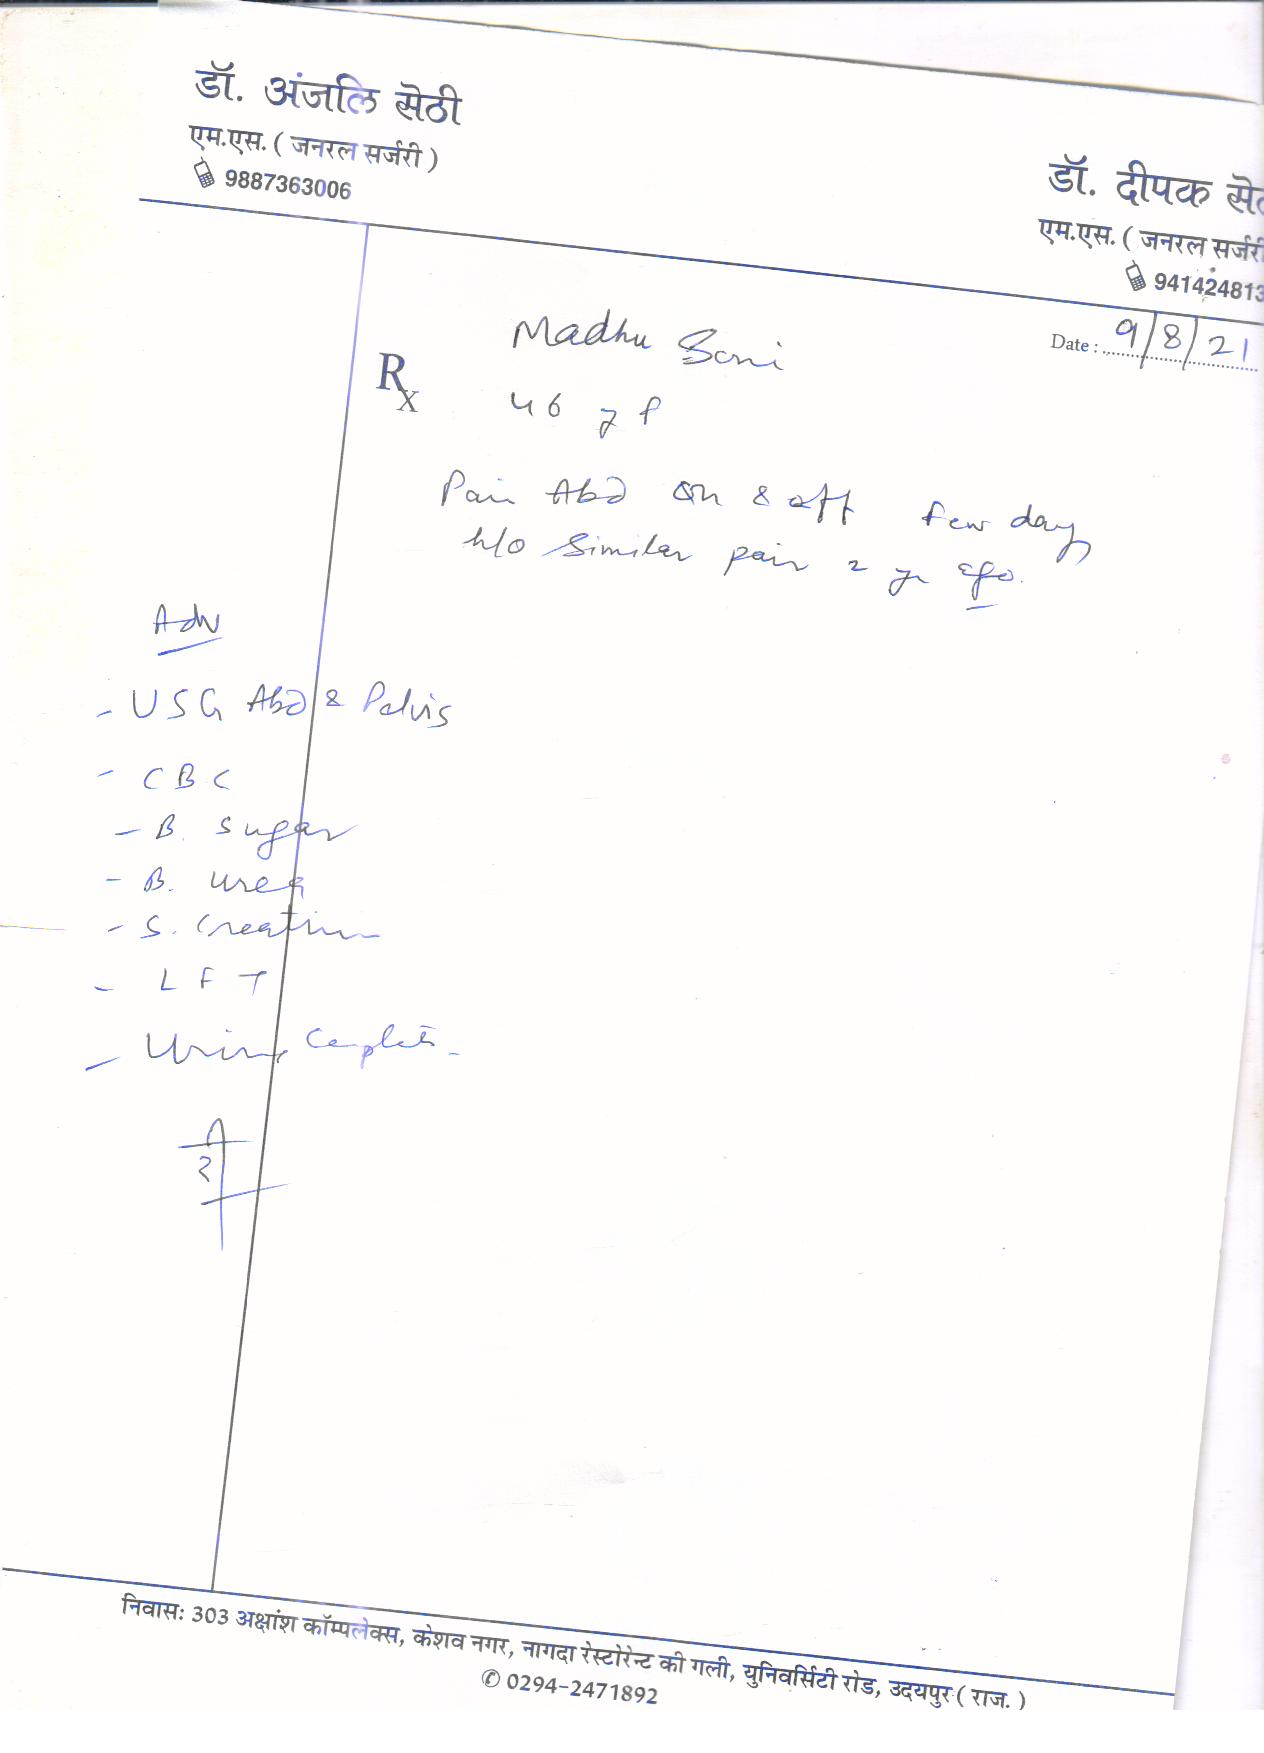 डॉ. अंजलि सेठी
एम.एस. ( जनरल सर्जरी )
9887363006
डॉ. दीपक से
एम.एस. ( जनरल सर्जरी
941424813
Date : 9/8/21
Rx
Madhu Soni
46 y F
Pain Abd on & off few days
h/o similar pain 2 yr ago.
Adv
- USG Abd & Pelvis
- CBC
- B. Sugar
- B. Urea
- S. Creatinine
- LFT
- Urine Complete
निवास: 303 अक्षांश कॉम्पलेक्स, केशव नगर, नागदा रेस्टोरेन्ट की गली, युनिवर्सिटी रोड, उदयपुर ( राज. )
✆ 0294-2471892